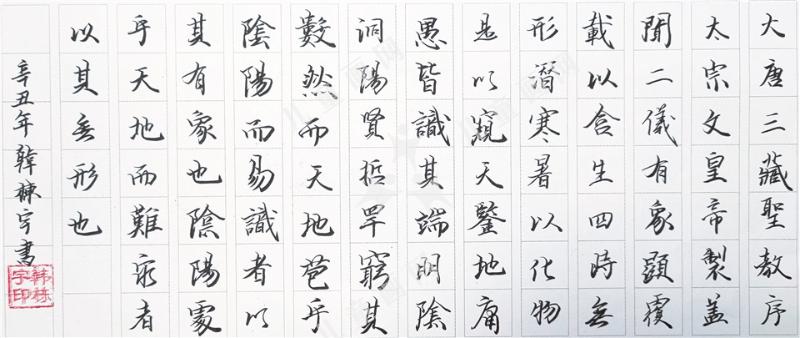 大唐三藏聖教序
太宗文皇帝製盖
聞二儀有象顯覆
載以含生四時無
形潛寒暑以化物
是以窺天鑒地庸
愚皆識其端明陰
洞陽賢哲罕窮其
數然而天地苞乎
陰陽而易識者以
其有象也陰陽處
乎天地而難窮者
以其無形也
辛丑年韓棟宇書
韩栋宇印